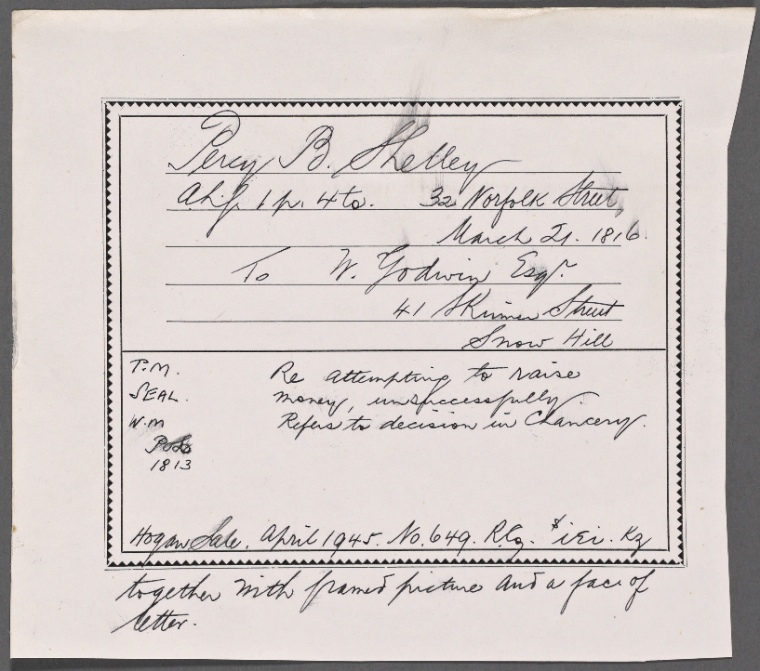 Percy B. Shelley
A.L.S. 1 p. 4to. 32 Norfolk Street,
March 21. 1816.
To W. Godwin Esqr.
41 Skinner Street
Snow Hill
P.M. Re attempting to raise
SEAL. money, unsuccessfully.
W.M Refers to decision in Chancery.
1813
Hogan Sale. April 1945. No. 649.
together with framed picture and a face of
letter.